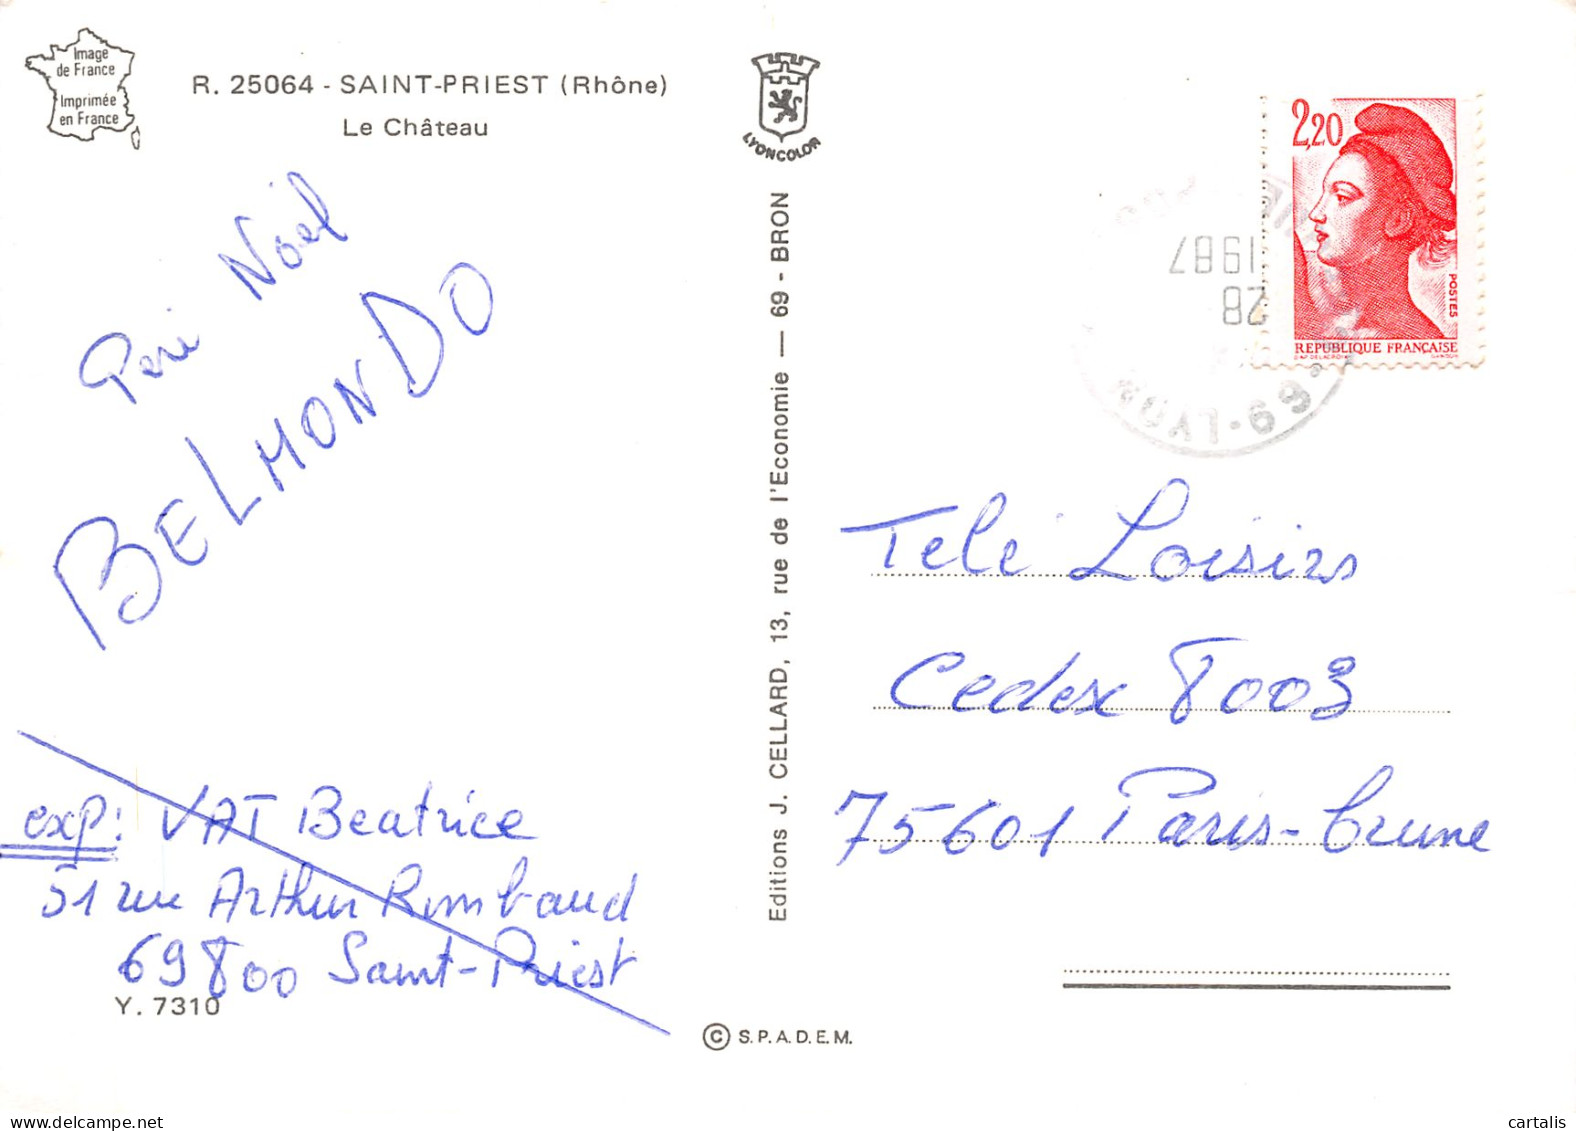 Image
de France
Imprimée
en France
R. 25064 - SAINT-PRIEST (Rhône)
Le Château
Pere Noël
BELMONDO
exp: VAT Beatrice
51 rue Arthur Rimbaud
69800 Saint-Priest
Y. 7310
LYONCOLOR
Editions J. CELLARD, 13, rue de l'Economie — 69 - BRON
© S.P.A.D.E.M.
2,20
POSTES
REPUBLIQUE FRANÇAISE
1987
28
LYON
69
Telé Loisirs
Cedex 8003
75601 Paris-Brune
cartalis.com